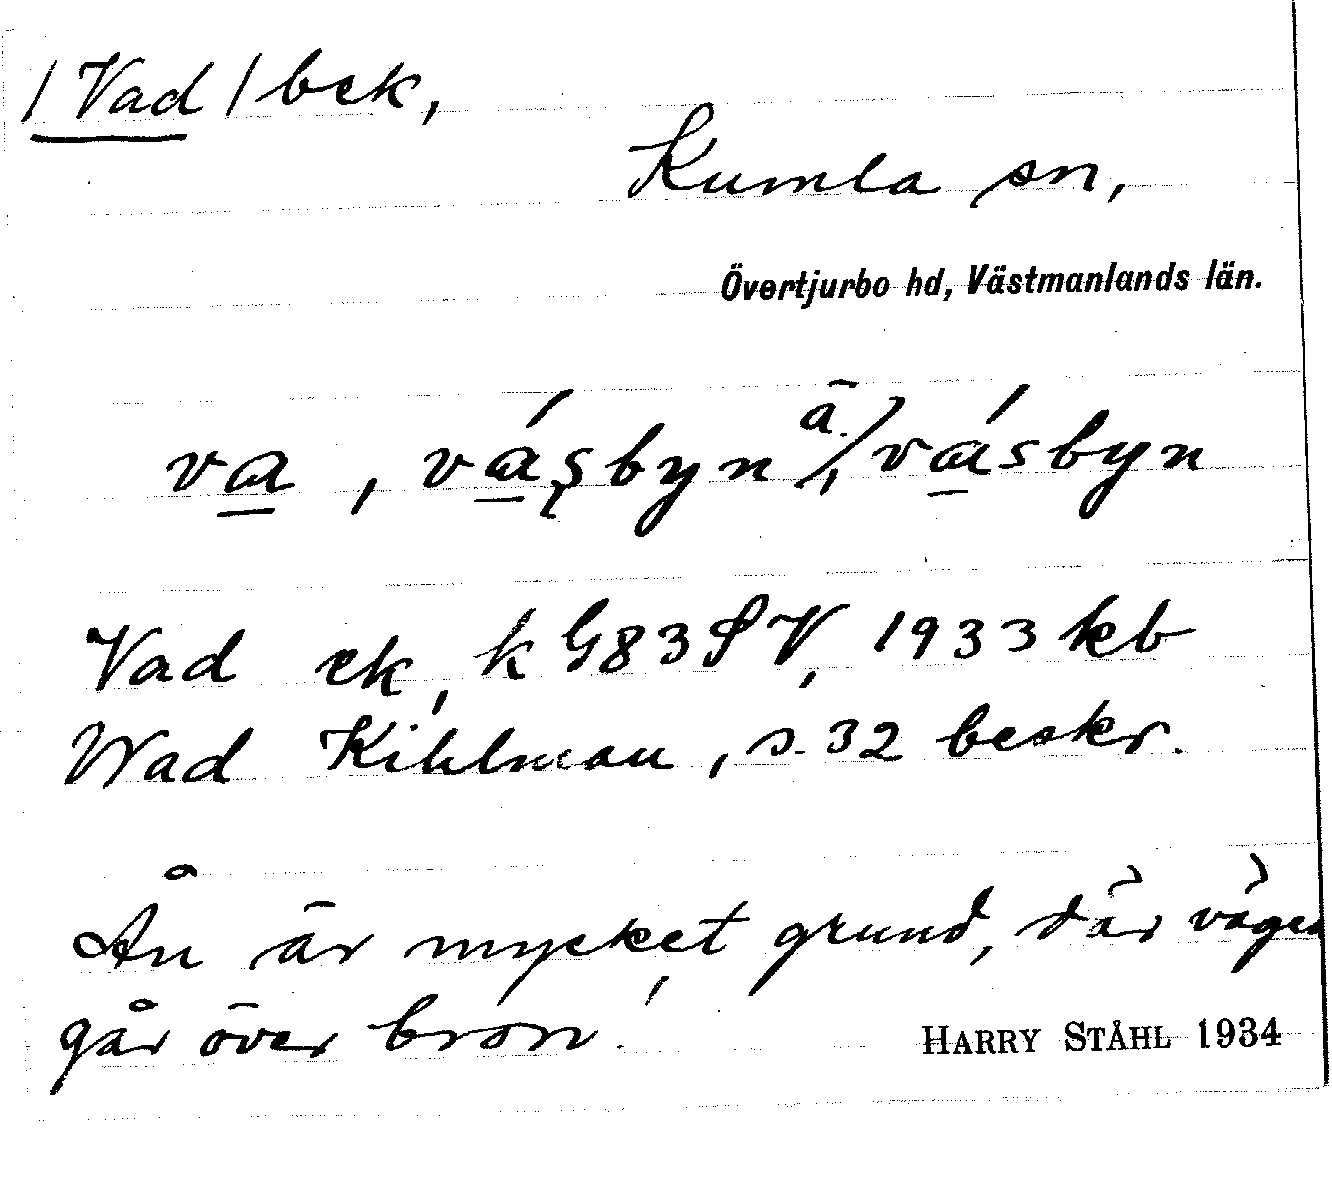 /Vad/ bek,
Kumla sn,
Övertjurbo hd, Västmanlands län.
va, vásbyn ä/, vásbyn
Vad ek, k G83SV, 1933 kb
Wad Kihlman, s. 32 beskr.
Ån är mycket grund, där vägen
går över bron.
HARRY STÅHL 1934